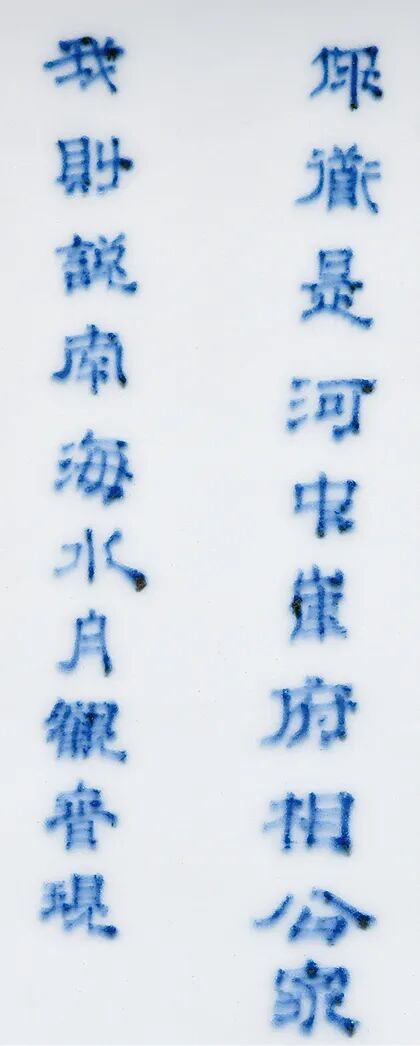 你道是河中崔府相公家
我則説南海水月觀音現